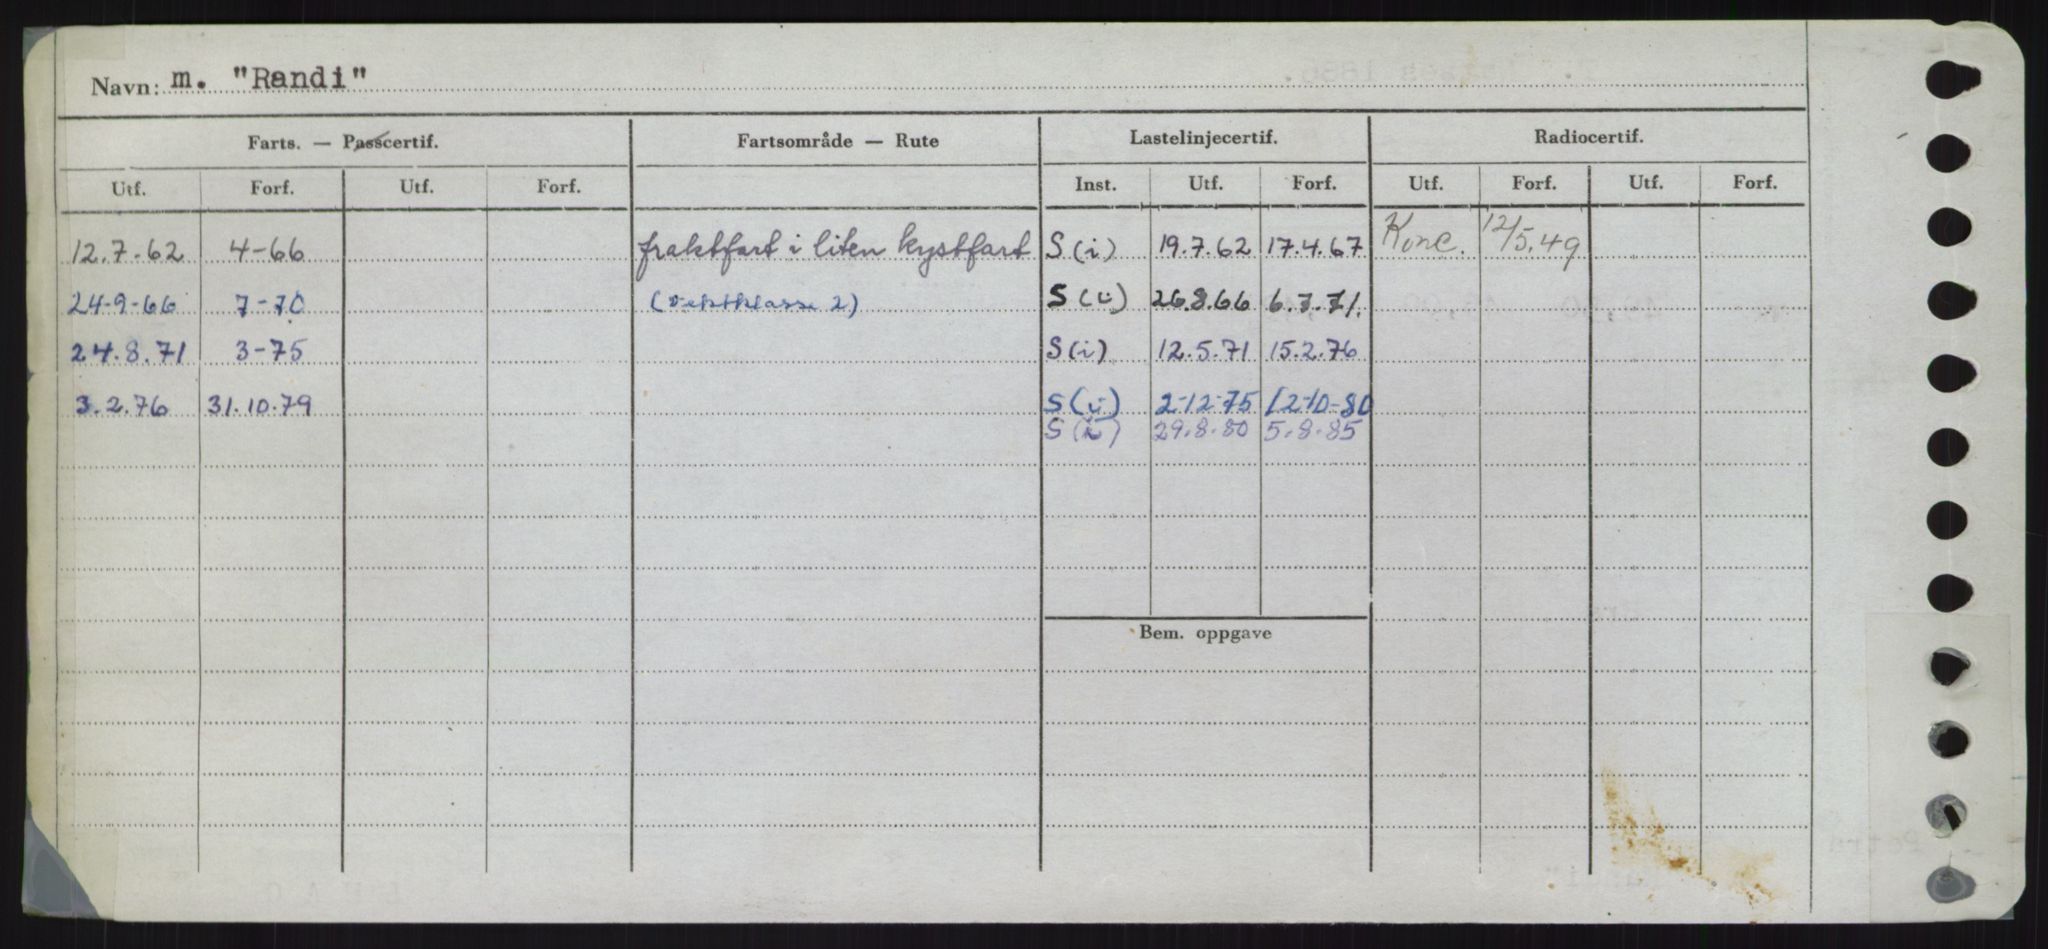 Navn: m. "Randi"
Farts. — Passcertif. Fartsområde — Rute Lastelinjecertif. Radiocertif.
Utf. Forf. Utf. Forf. Inst. Utf. Forf. Utf. Forf. Utf. Forf.
12.7.62 4-66 fraktfart i liten kystfart S (i) 19.7.62 17.4.67 Konc. 12/5.49
24-9-66 7-70 (Dekthklasse 2) S (i) 26.8.66 6.7.71.
24.8.71 3-75 S (i) 12.5.71 15.2.76
3.2.76 31.10.79 S (i) 2-12-75 12-10-80
S (i) 29.8.80 5.8.85
Bem. oppgave